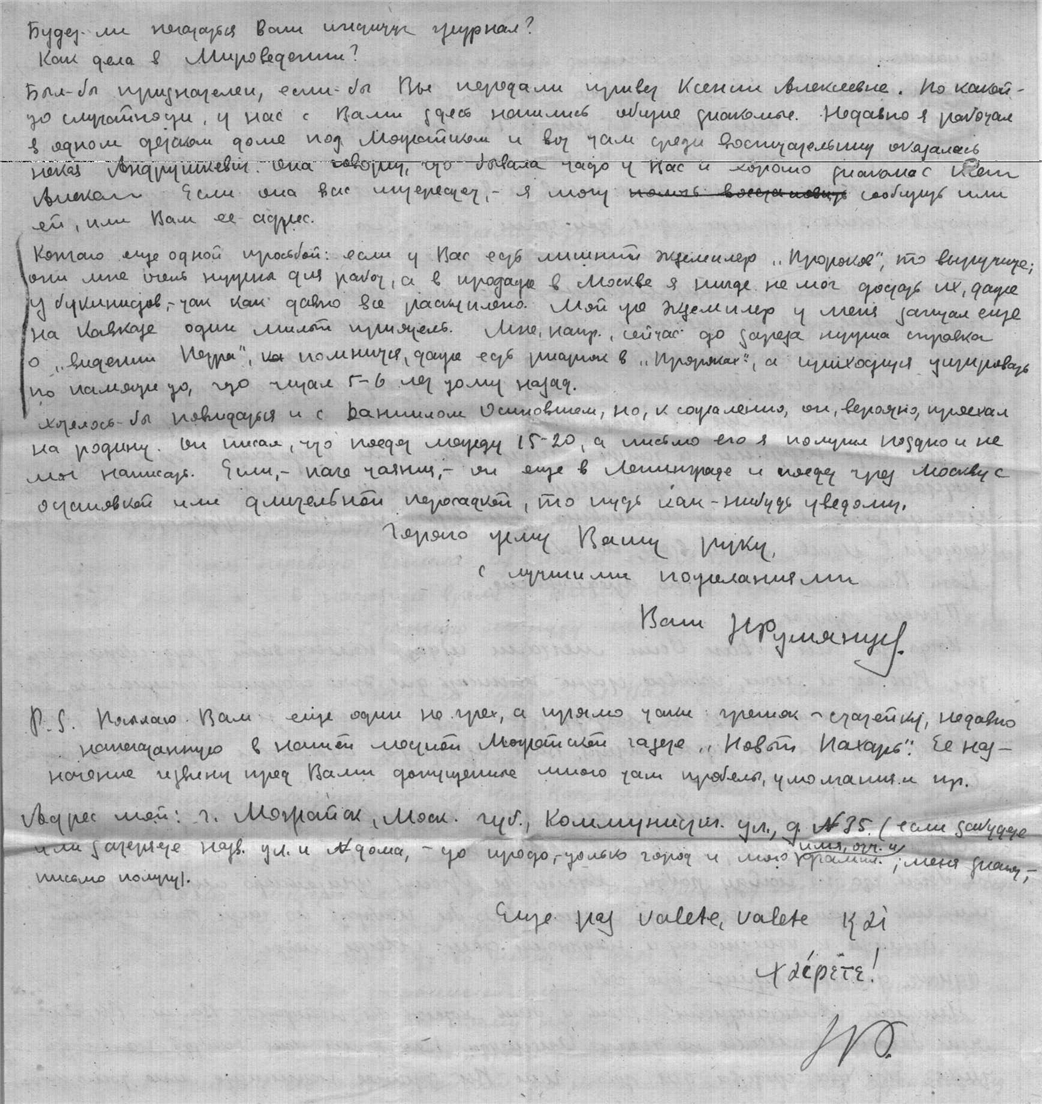 Будет-ли печататься Ваш журнал?
Как дела в Мироведении?
Был-бы признателен, если-бы Вы передали привет Ксении Алексеевне. По какой-
то случайности, у нас с Вами здесь нашлись общие знакомые. Недавно я работал
в одном детском доме под Можайском и вот там среди воспитательниц оказалась
некая Андрушкевич. Она говорит, что бывала часто у Вас и хорошо знакома с Ксен
Алексеевн Если она вас интересует, - я могу помочь восстановить сообщить или
ей, или Вам ее адрес.
Кончаю еще одной просьбой: если у Вас есть лишний экземпляр „Пророков", то выручите;
они мне очень нужны для работ, а в продаже в Москве я нигде не мог достать их, даже
у букинистов, - так как давно все раскуплено. Мой же экземпляр у меня зачитал еще
на Кавказе один милый приятель. Мне, напр., сейчас до зареза нужна справка
о „видении Петра", помнится, даже есть в „Пророках", а приходится цитировать
по памяти то, что читал 5-6 лет тому назад.
Хотелось-бы повидаться и с Даниилом Осиповичем, но, к сожалению, он, вероятно, проехал
на родину. Он писал, что поедет между 15-20, а письмо его я получил поздно и не
мог написать. Если, - паче чаяния, - он еще в Ленинграде и поедет через Москву с
остановкой или длительной пересадкой, то пусть как-нибудь уведомит.
Горячо жму Вашу руку,
с лучшими пожеланиями
Ваш НРумянцев.
P.S. Посылаю Вам еще один не грех, а прямо таки грешок - статейку, недавно
напечатанную в нашей местной Можайской газете „Новый Пахарь". Ее наз-
начение извинит пред Вами допущенные мною там пробелы, умолчания и пр.
Адрес мой: г. Можайск, Моск. губ., Коммунистич. ул., д. № 35. (если забудете
или затеряете назв. ул. и № дома, - то просто, - только город и мою имя, отч. и фамил.; меня знают, -
письмо получу).
Еще раз valete, valete καὶ
χαίρετε!
НР.